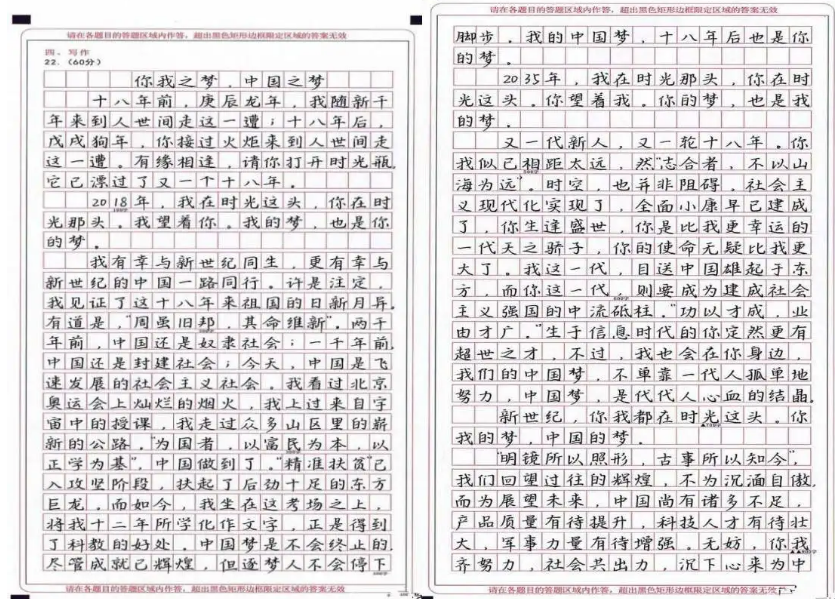 请在各题目的答题区域内作答，超出黑色矩形边框限定区域的答案无效
四、写作
22.（60分）
你我之梦，中国之梦
十八年前，庚辰龙年，我随新千
年来到人世间走这一遭；十八年后，
戊戌狗年，你接过火炬来到人世间走
这一遭。有缘相逢，请你打开时光瓶，
它已漂过了又一个十八年。
2018年，我在时光这头，你在时
光那头。我望着你。我的梦，也是你
的梦。
我有幸与新世纪同生，更有幸与
新世纪的中国一路同行。许是注定，
我见证了这十八年来祖国的日新月异。
有道是，“周虽旧邦，其命维新”。两千
年前，中国还是奴隶社会；一千年前，
中国还是封建社会；今天，中国是飞
速发展的社会主义社会。我看过北京
奥运会上灿烂的烟火，我上过来自宇
宙中的授课，我走过众多山区里的崭
新的公路。“为国者，以富民为本，以
正学为基”，中国做到了。“精准扶贫”已
入攻坚阶段，扶起了后劲十足的东方
巨龙。而如今，我坐在这考场之上，
将我十二年所学化作文字，正是得到
了科教的好处。中国梦是不会终止的。
尽管成就已辉煌，但逐梦人不会停下
请在各题目的答题区域内作答，超出黑色矩形边框限定区域的答案无效
请在各题目的答题区域内作答，超出黑色矩形边框限定区域的答案无效
脚步。我的中国梦，十八年后也是你
的梦。
2035年，我在时光那头，你在时
光这头。你望着我。你的梦，也是我
的梦。
又一代新人，又一轮十八年。你
我似已相距太远，然“志合者，不以山
海为远”。时空，也并非阻碍。社会主
义现代化实现了，全面小康早已建成
了，你生逢盛世，你是比我更幸运的
一代天之骄子，你的使命无疑比我更
大了。我这一代，目送中国雄起于东
方，而你这一代，则要成为建成社会
主义强国的中流砥柱。“功以才成，业
由才广。”生于信息时代的你定然更有
超世之才，不过，我也会在你身边，
我们的中国梦，不单靠一代人孤单地
努力，中国梦，是代代人心血的结晶。
新世纪，你我都在时光这头。你
我的梦，中国的梦。
“明镜所以照形，古事所以知今”，
我们回望过往的辉煌，不为沉湎自傲，
而为展望未来，中国尚有诸多不足，
产品质量有待提升，科技人才有待壮
大，军事力量有待增强。无妨，你我
齐努力，社会共出力，沉下心来为中
请在各题目的答题区域内作答，超出黑色矩形边框限定区域的答案无效